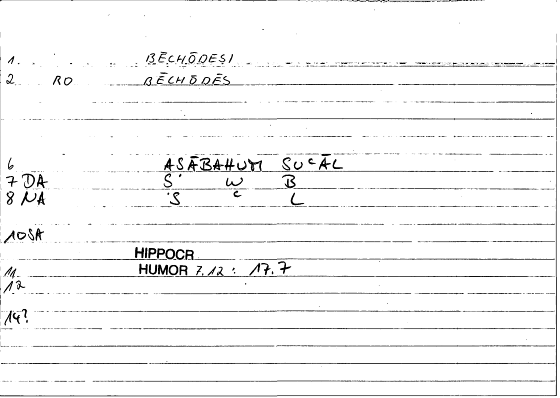 1. BĒCHŌDĒSI
2 RO BĒCHŌDĒS
6 ASĀBAHUM SUᶜĀL
7 DA Ṣ W B
8 NA S ᶜ L
10 SA
HIPPOCR
11 HUMOR 7.12 : 17.7
12
14?